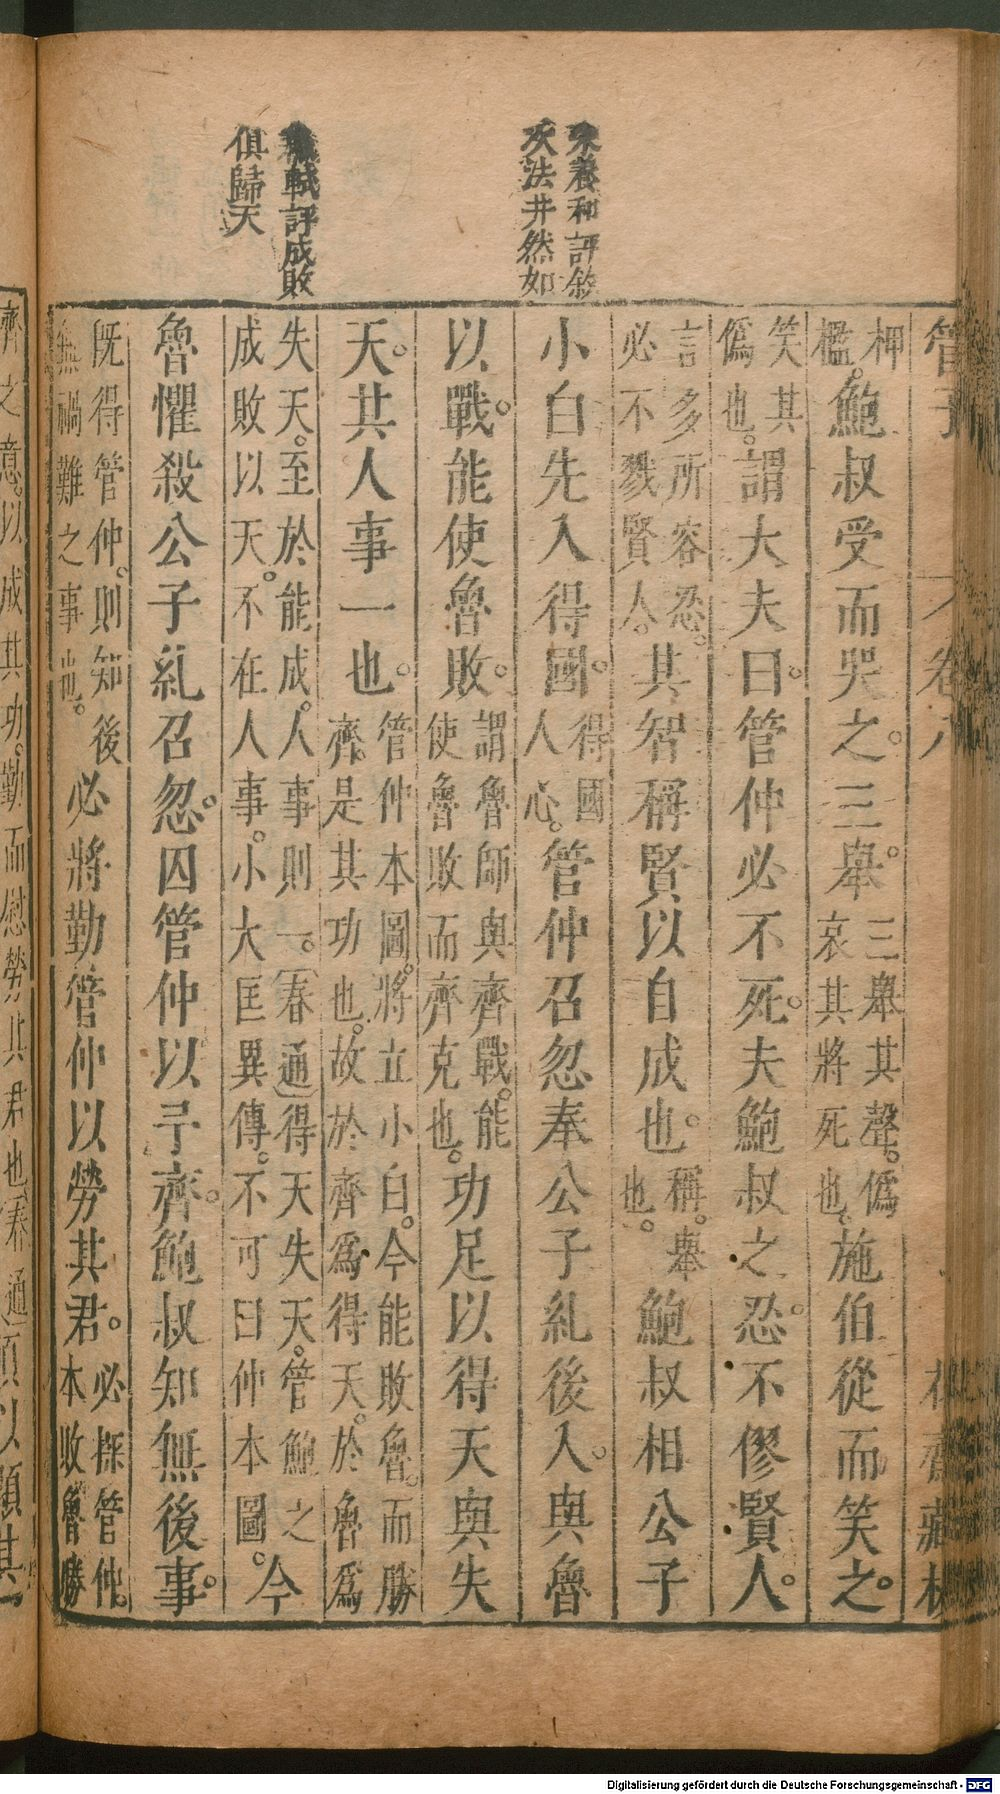 管子 卷八
柙檻。鮑叔受而哭之。三舉。三舉其聲。僞哀其將死也。施伯從而笑之。
笑其僞也。謂大夫曰。管仲必不死。夫鮑叔之忍。不僇賢人。
言多所容忍。必不戮賢人。其智稱賢以自成也。稱。舉也。鮑叔相公子
小白先入得國。得國人心。管仲召忽奉公子糺後入。與魯
以戰。能使魯敗。謂魯師與齊戰。能使魯敗而齊克也。功足以得天與失
天。其人事一也。管仲本圖。將立小白。今能敗魯。而勝齊。是其功也。故於齊爲得天。於魯爲
失天。至於能成。人事則一。(春通)得天失天。管鮑之成敗以天。不在人事。小大匡異傳。不可曰仲本圖。今
魯懼殺公子糺召忽。囚管仲以予齊。鮑叔知無後事。
既得管仲。則知後無禍難之事也。必將勤管仲以勞其君。必探管仲。本敗魯勝
齊之意。以成其功。勤而慰勞其君也(春通)以顯其
朱養和評敘
次法井然如
軾評成敗
俱歸天
Digitalisierung gefördert durch die Deutsche Forschungsgemeinschaft - DFG